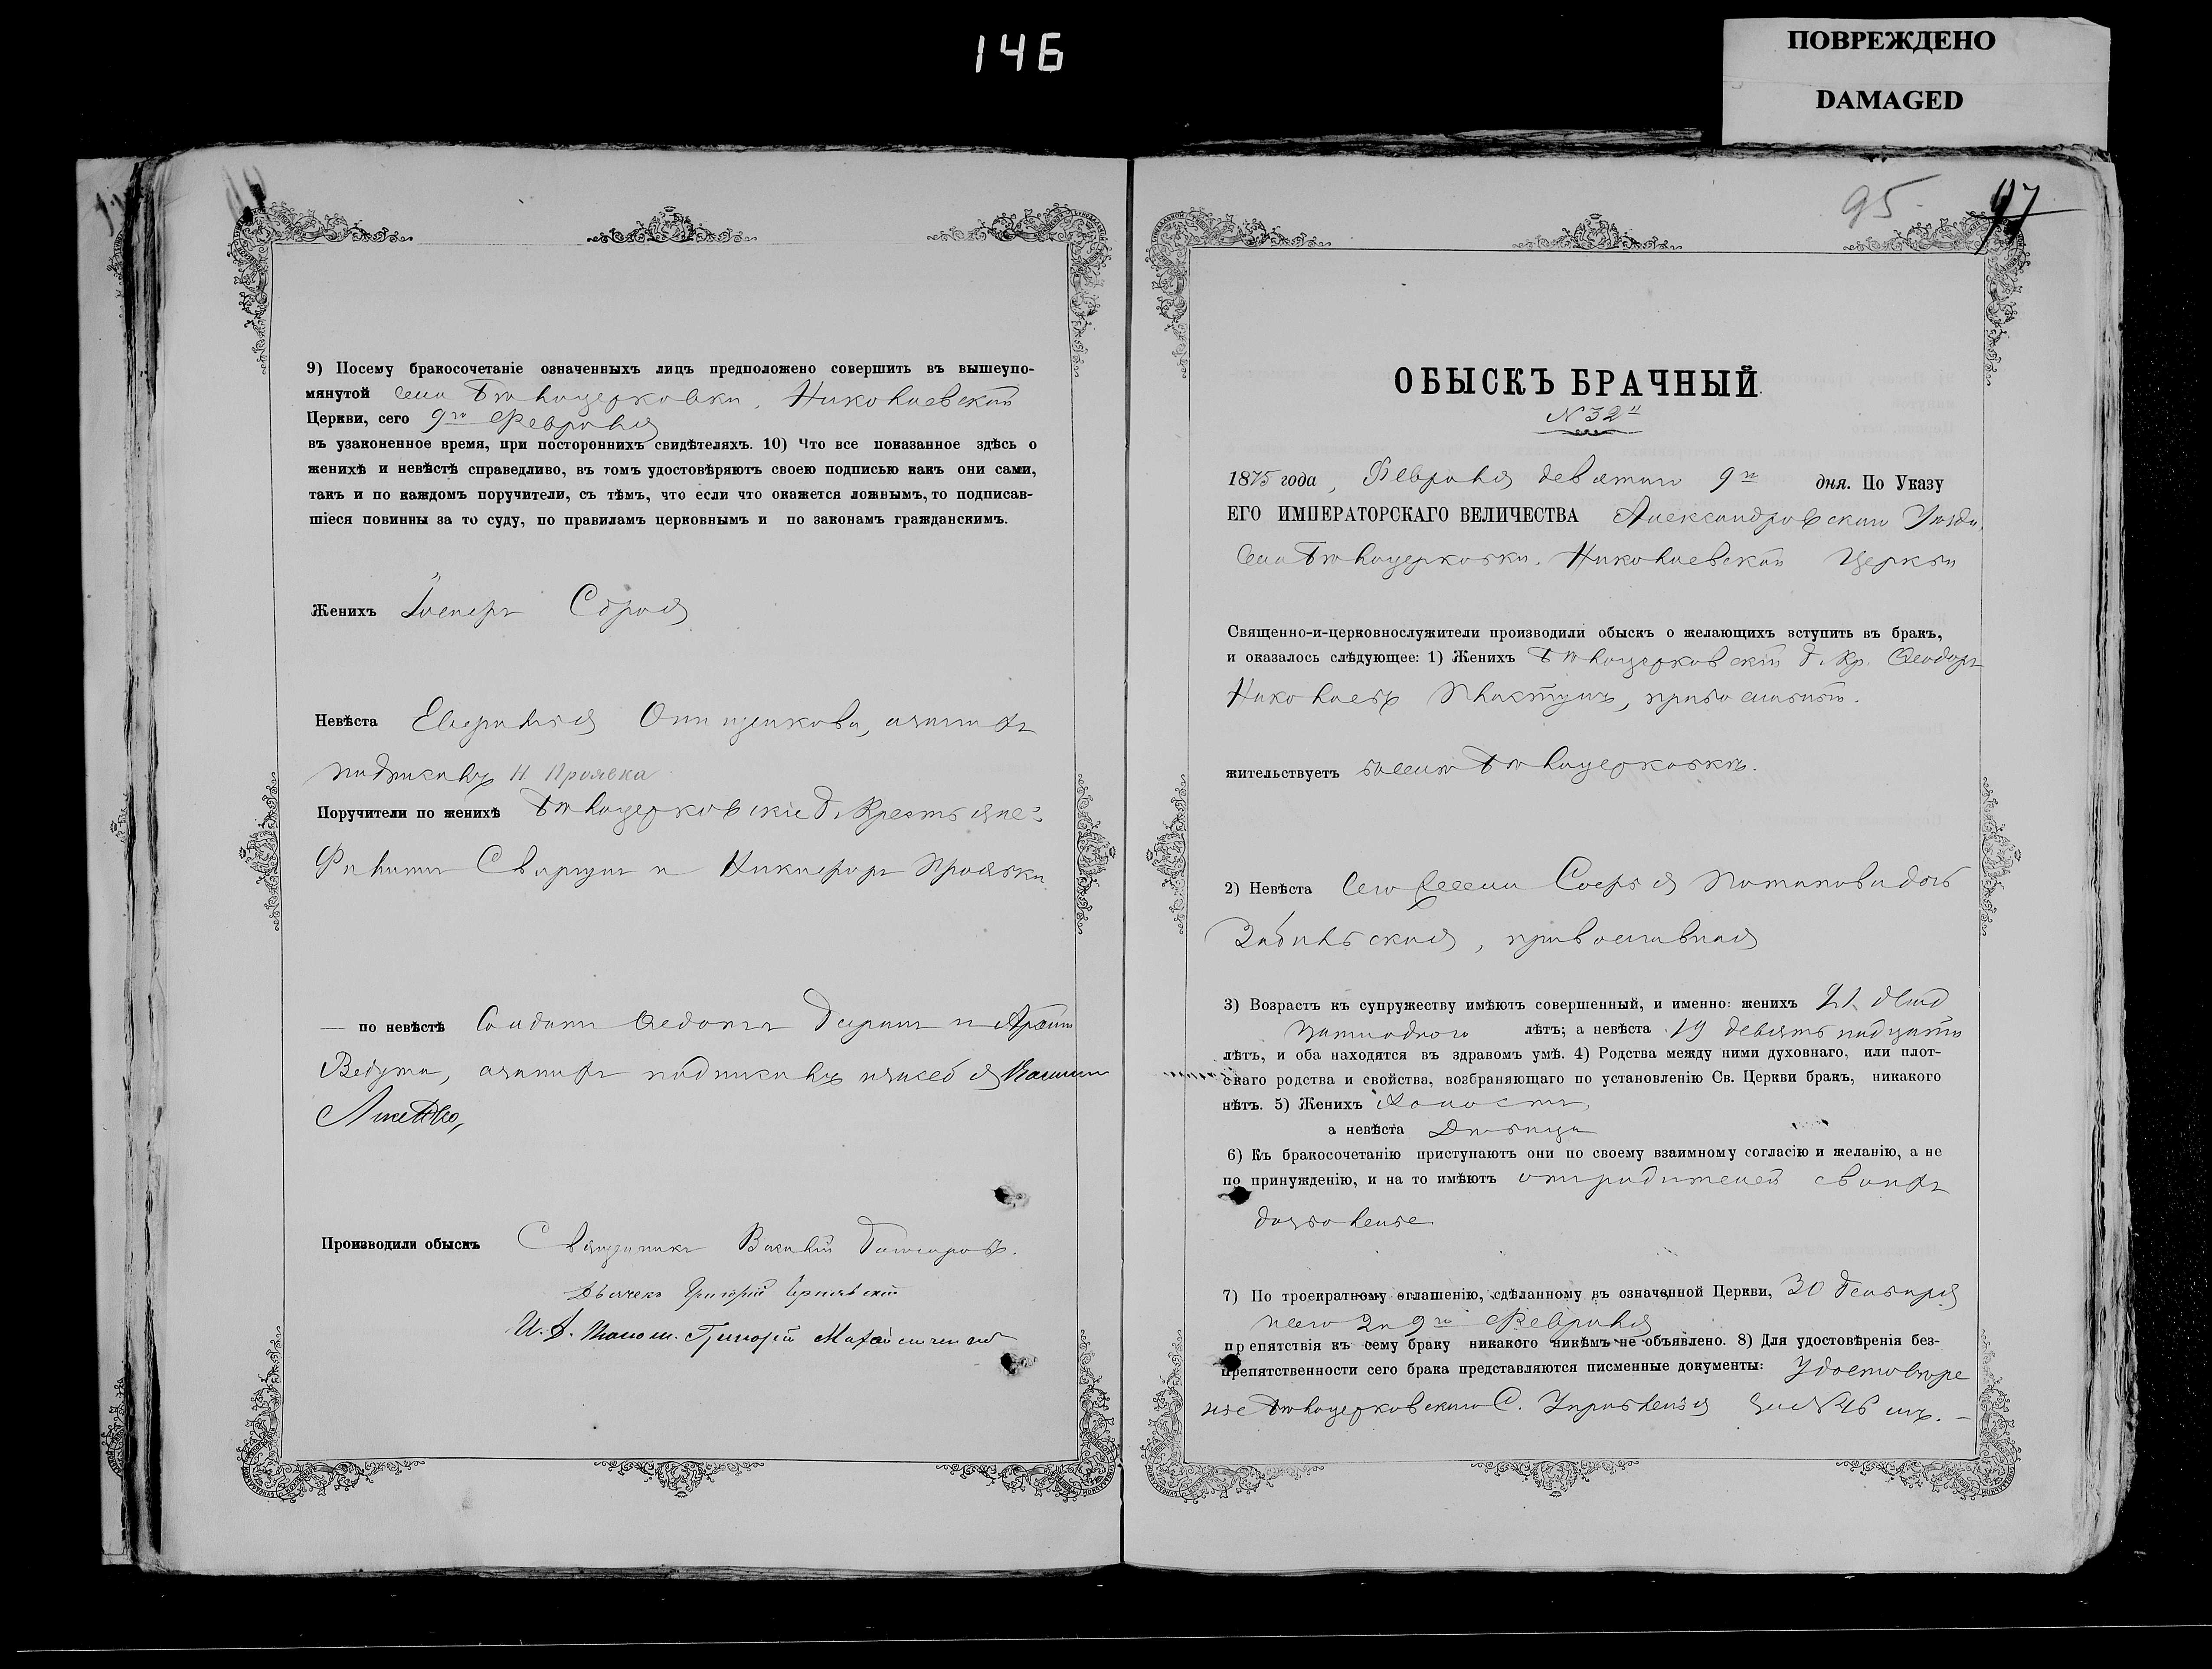 146
ПОВРЕЖДЕНО
DAMAGED
9) Посему бракосочетаніе означенныхъ лицъ предположено совершить въ вышеупо-
мянутой села Бѣлоцерковки, Николаевской
Церкви, сего 9го Февраля
въ узаконенное время, при постороннихъ свидѣтеляхъ. 10) Что все показанное здѣсь о
женихѣ и невѣстѣ справедливо, въ томъ удостовѣряютъ своею подписью какъ они сами,
такъ и по каждомъ поручители, съ тѣмъ, что если что окажется ложнымъ, то подписав-
шіеся повинны за то суду, по правиламъ церковнымъ и по законамъ гражданскимъ.
Женихъ
Невѣста
подписалъ Н Проявка
Поручители по женихѣ Бѣлоцерковскіе Г. Крестьяне:
Филипъ Сваргунъ и Никифоръ Проявка
— по невѣстѣ Солдатъ Федотъ
подписалъ
Производили обыскъ Священникъ Василій
Дьячекъ Григорій
И. д. Григорій
95 97
ОБЫСКЪ БРАЧНЫЙ
№ 32й
1875 года, Февраля девятаго 9го дня. По Указу
ЕГО ИМПЕРАТОРСКАГО ВЕЛИЧЕСТВА Александровскаго Уѣзда
Села Бѣлоцерковки, Николаевской Церкви
Священно-и-церковнослужители производили обыскъ о желающихъ вступить въ бракъ,
и оказалось слѣдующее: 1) Женихъ Бѣлоцерковскій Г. Кр. Феодоръ
Николаевъ Пластунъ, православный.
жительствуетъ въ селѣ Бѣлоцерковкѣ.
2) Невѣста сего села Софья Потапова дочь
Забильская, православная
3) Возрастъ къ супружеству имѣютъ совершенный, и именно: женихъ 21 двад
цатиодного лѣтъ; а невѣста 19 девятнадцати
лѣтъ, и оба находятся въ здравомъ умѣ. 4) Родства между ними духовнаго, или плот-
скаго родства и свойства, возбраняющаго по установленію Св. Церкви бракъ, никакого
нѣтъ. 5) Женихъ Холостъ,
а невѣста Дѣвица
6) Къ бракосочетанію приступаютъ они по своему взаимному согласію и желанію, а не
по принужденію, и на то имѣютъ отъ родителей своихъ
дозволенье
7) По троекратному оглашенію, сдѣланному въ означенной Церкви, 30 Генваря
2 и 9го Февраля
препятствія къ сему браку никакого никѣмъ не объявлено. 8) Для удостовѣренія без-
препятственности сего брака представляются писменные документы: Удостовѣре
ніе Бѣлоцерковскаго С. Управленія за №46мъ. —